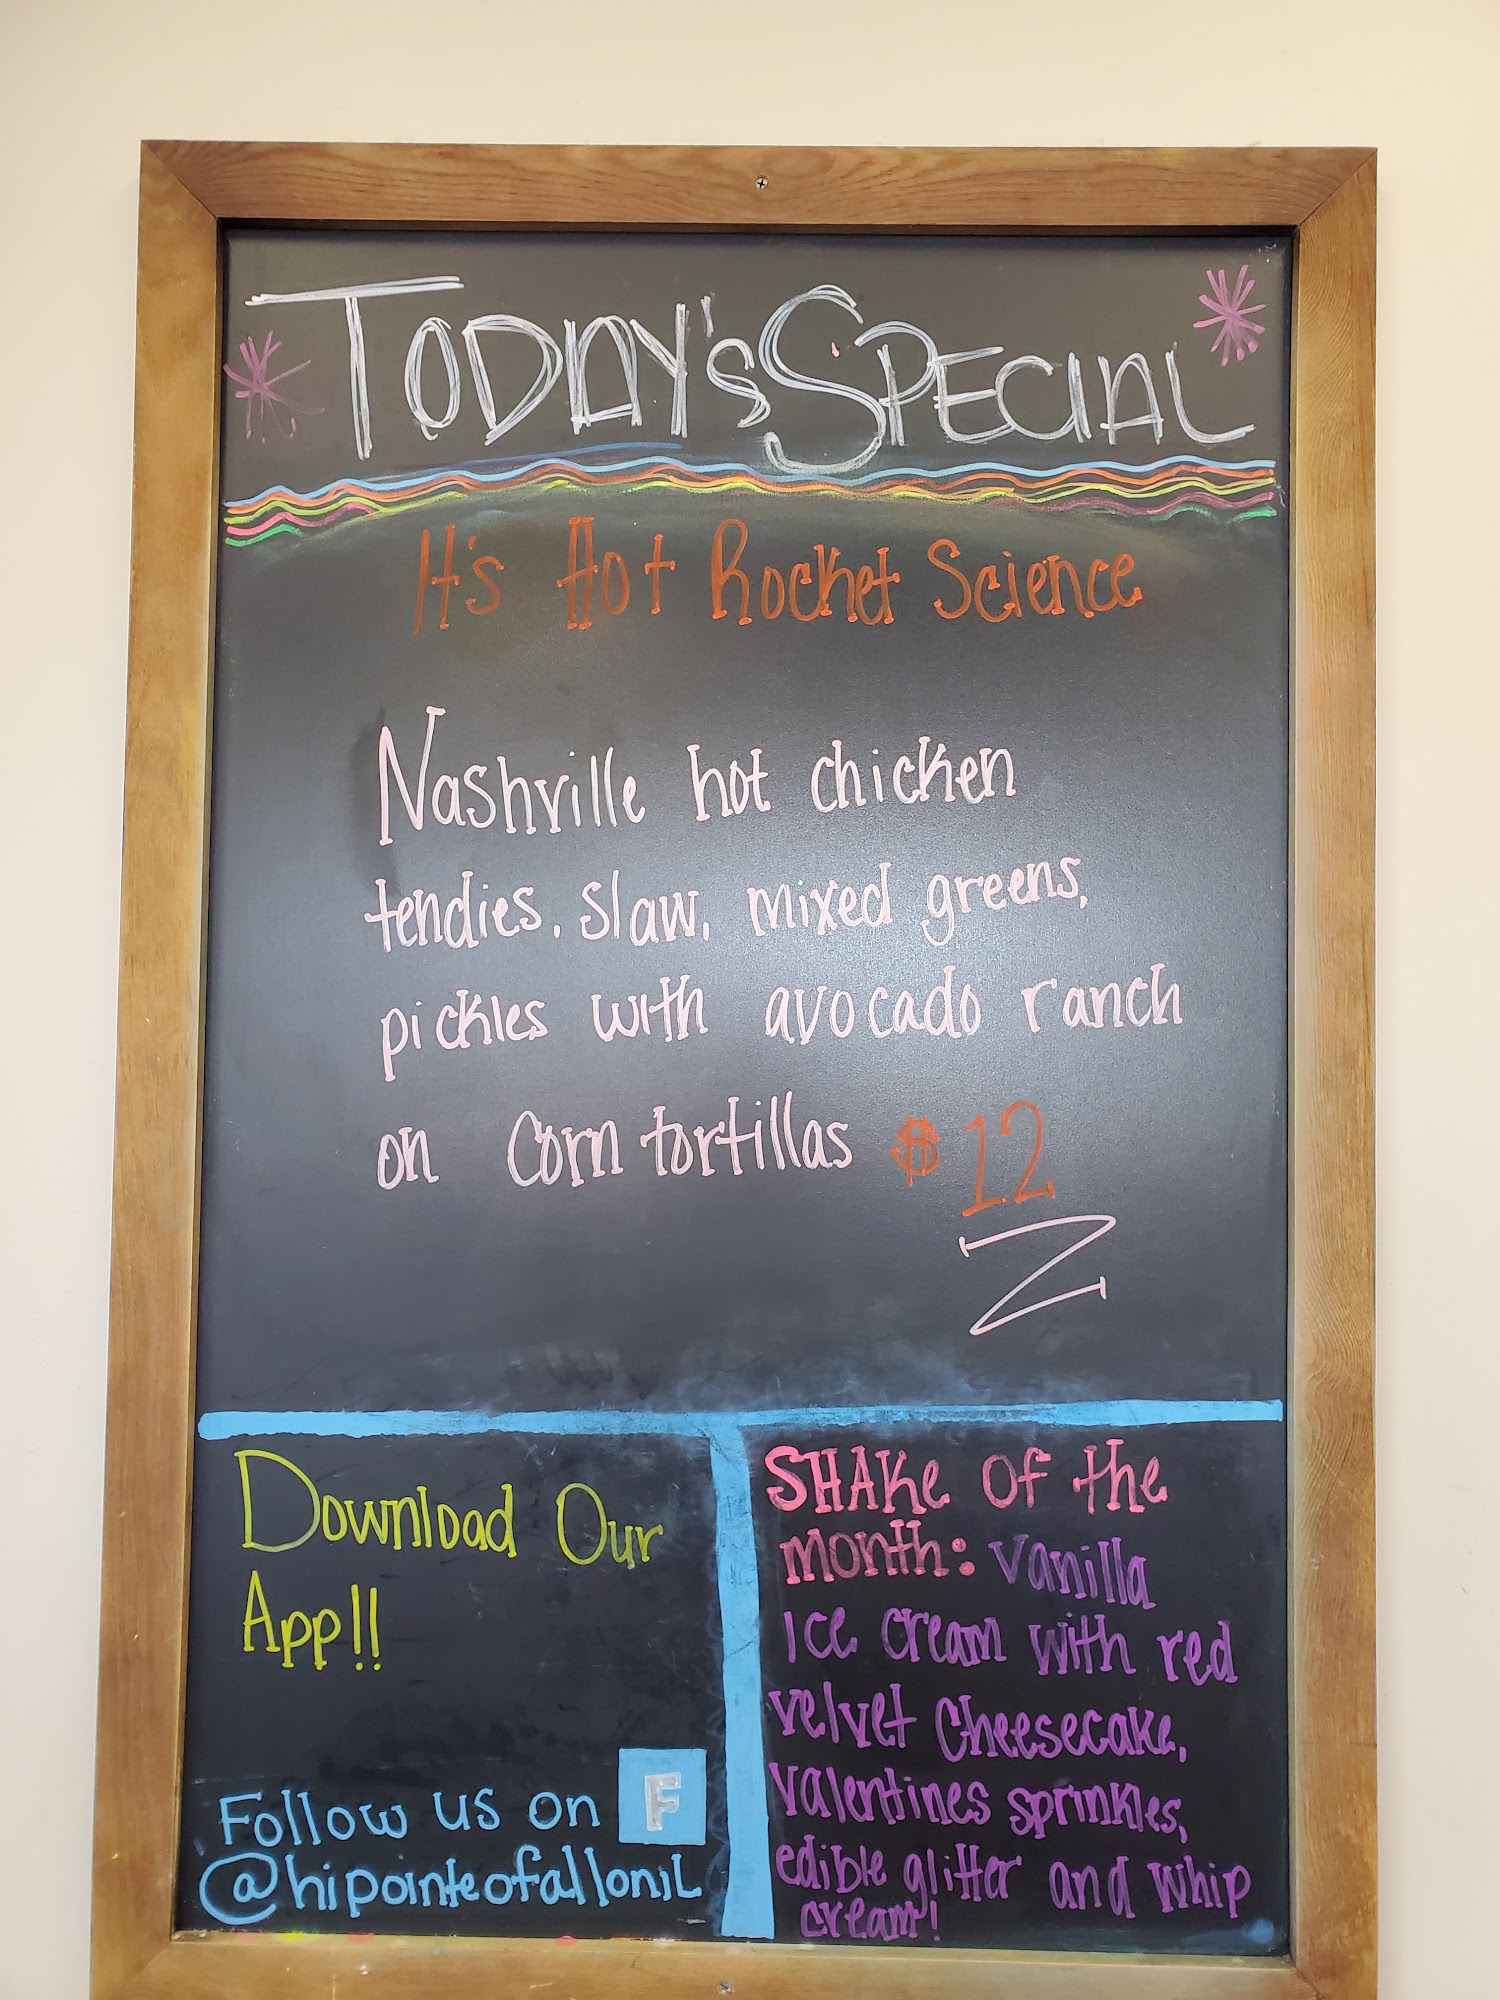 Today's Special
It's Hot Rocket Science
Nashville hot chicken
tendies, slaw, mixed greens,
pickles with avocado ranch
on corn tortillas $12
Download Our
App!!
Follow us on F
@hipointeofallonil
SHAKe OF the
month: Vanilla
Ice cream with red
velvet Cheesecake,
Valentines sprinkles,
edible glitter and whip
cream!